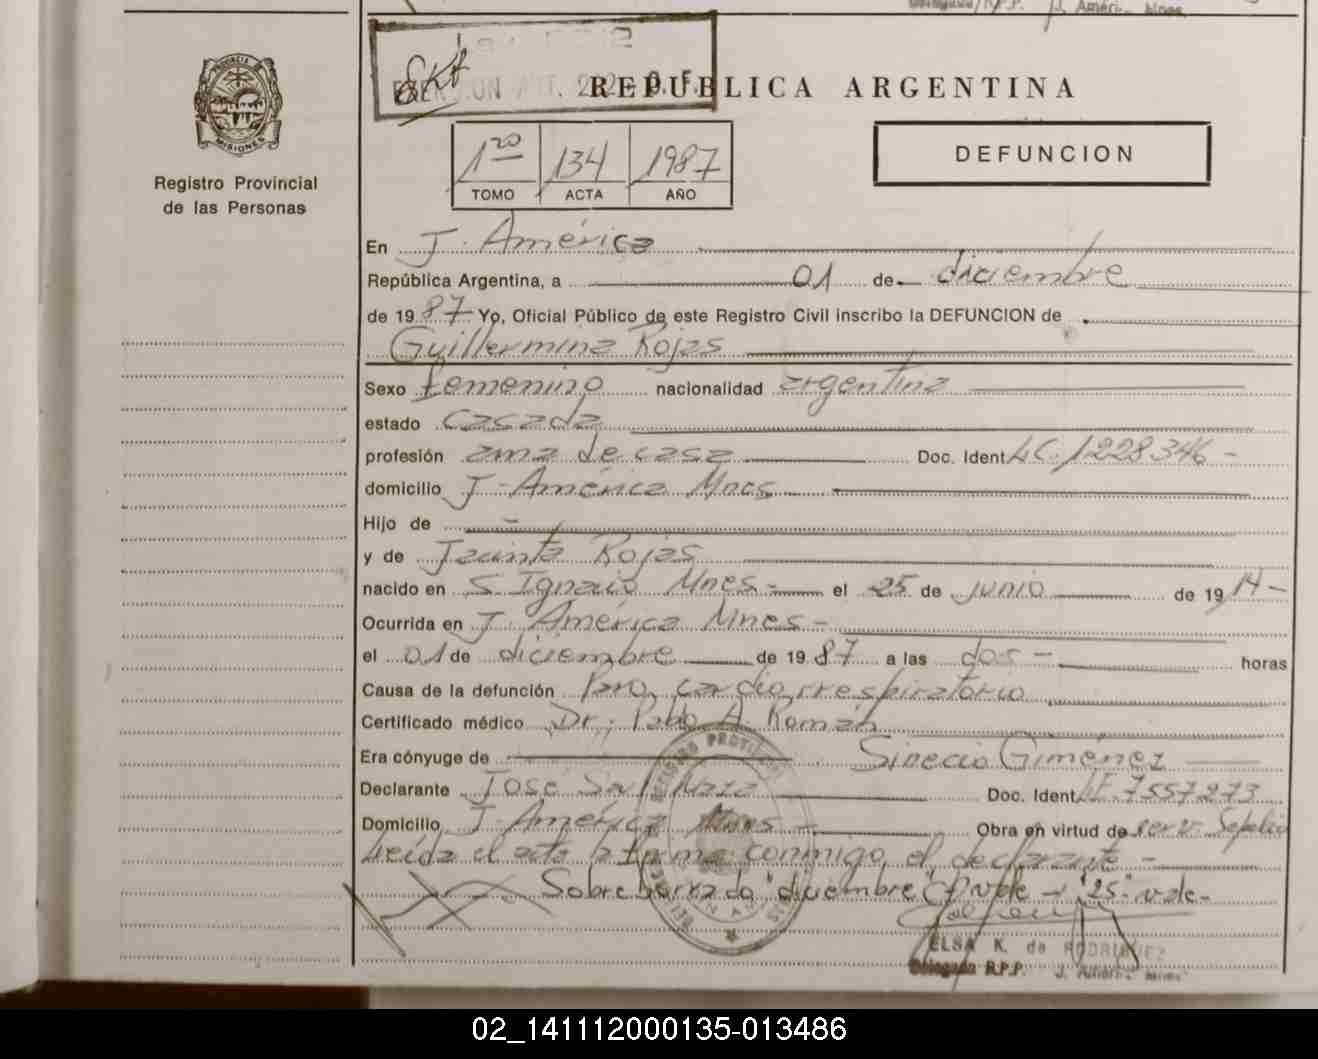 PROVINCIA DE
MISIONES
Registro Provincial
de las Personas
REPUBLICA ARGENTINA
1ro 134 1987
TOMO ACTA AÑO
DEFUNCION
En J. América
República Argentina, a 01 de diciembre
de 1987 Yo, Oficial Público de este Registro Civil inscribo la DEFUNCION de
Guillermina Rojas
Sexo femenino nacionalidad argentina
estado casada
profesión ama de casa Doc. Ident LC. 1228346 -
domicilio J. América Mnes
Hijo de
y de Jacinta Rojas
nacido en S. Ignacio Mnes - el 25 de junio de 1914 -
Ocurrida en J. América Mnes -
el 01 de diciembre de 1987 a las dos - horas
Causa de la defunción Paro cardiorrespiratorio
Certificado médico Dr. Pablo A. Román
Era cónyuge de Sinecio Giménez
Declarante José Doc. Ident 7557273
Domicilio J. América Mnes - Obra en virtud de serv. Sepelio
Leída el acta la firma conmigo el declarante -
Sobreborrado "diciembre" vale - "25" vale -
ELSA K. de RODRIGUEZ
Delegada R.P.P.
02_141112000135-013486